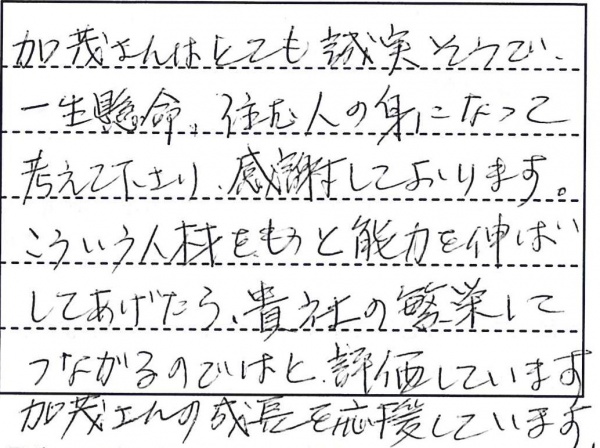 加茂さんはとても誠実そうで、
一生懸命、住む人の身になって
考えて下さり、感謝しております。
こういう人材をもっと能力を伸ば
してあげたら、貴社の繁栄して
つながるのではと、評価しています
加茂さんの成長を応援しています